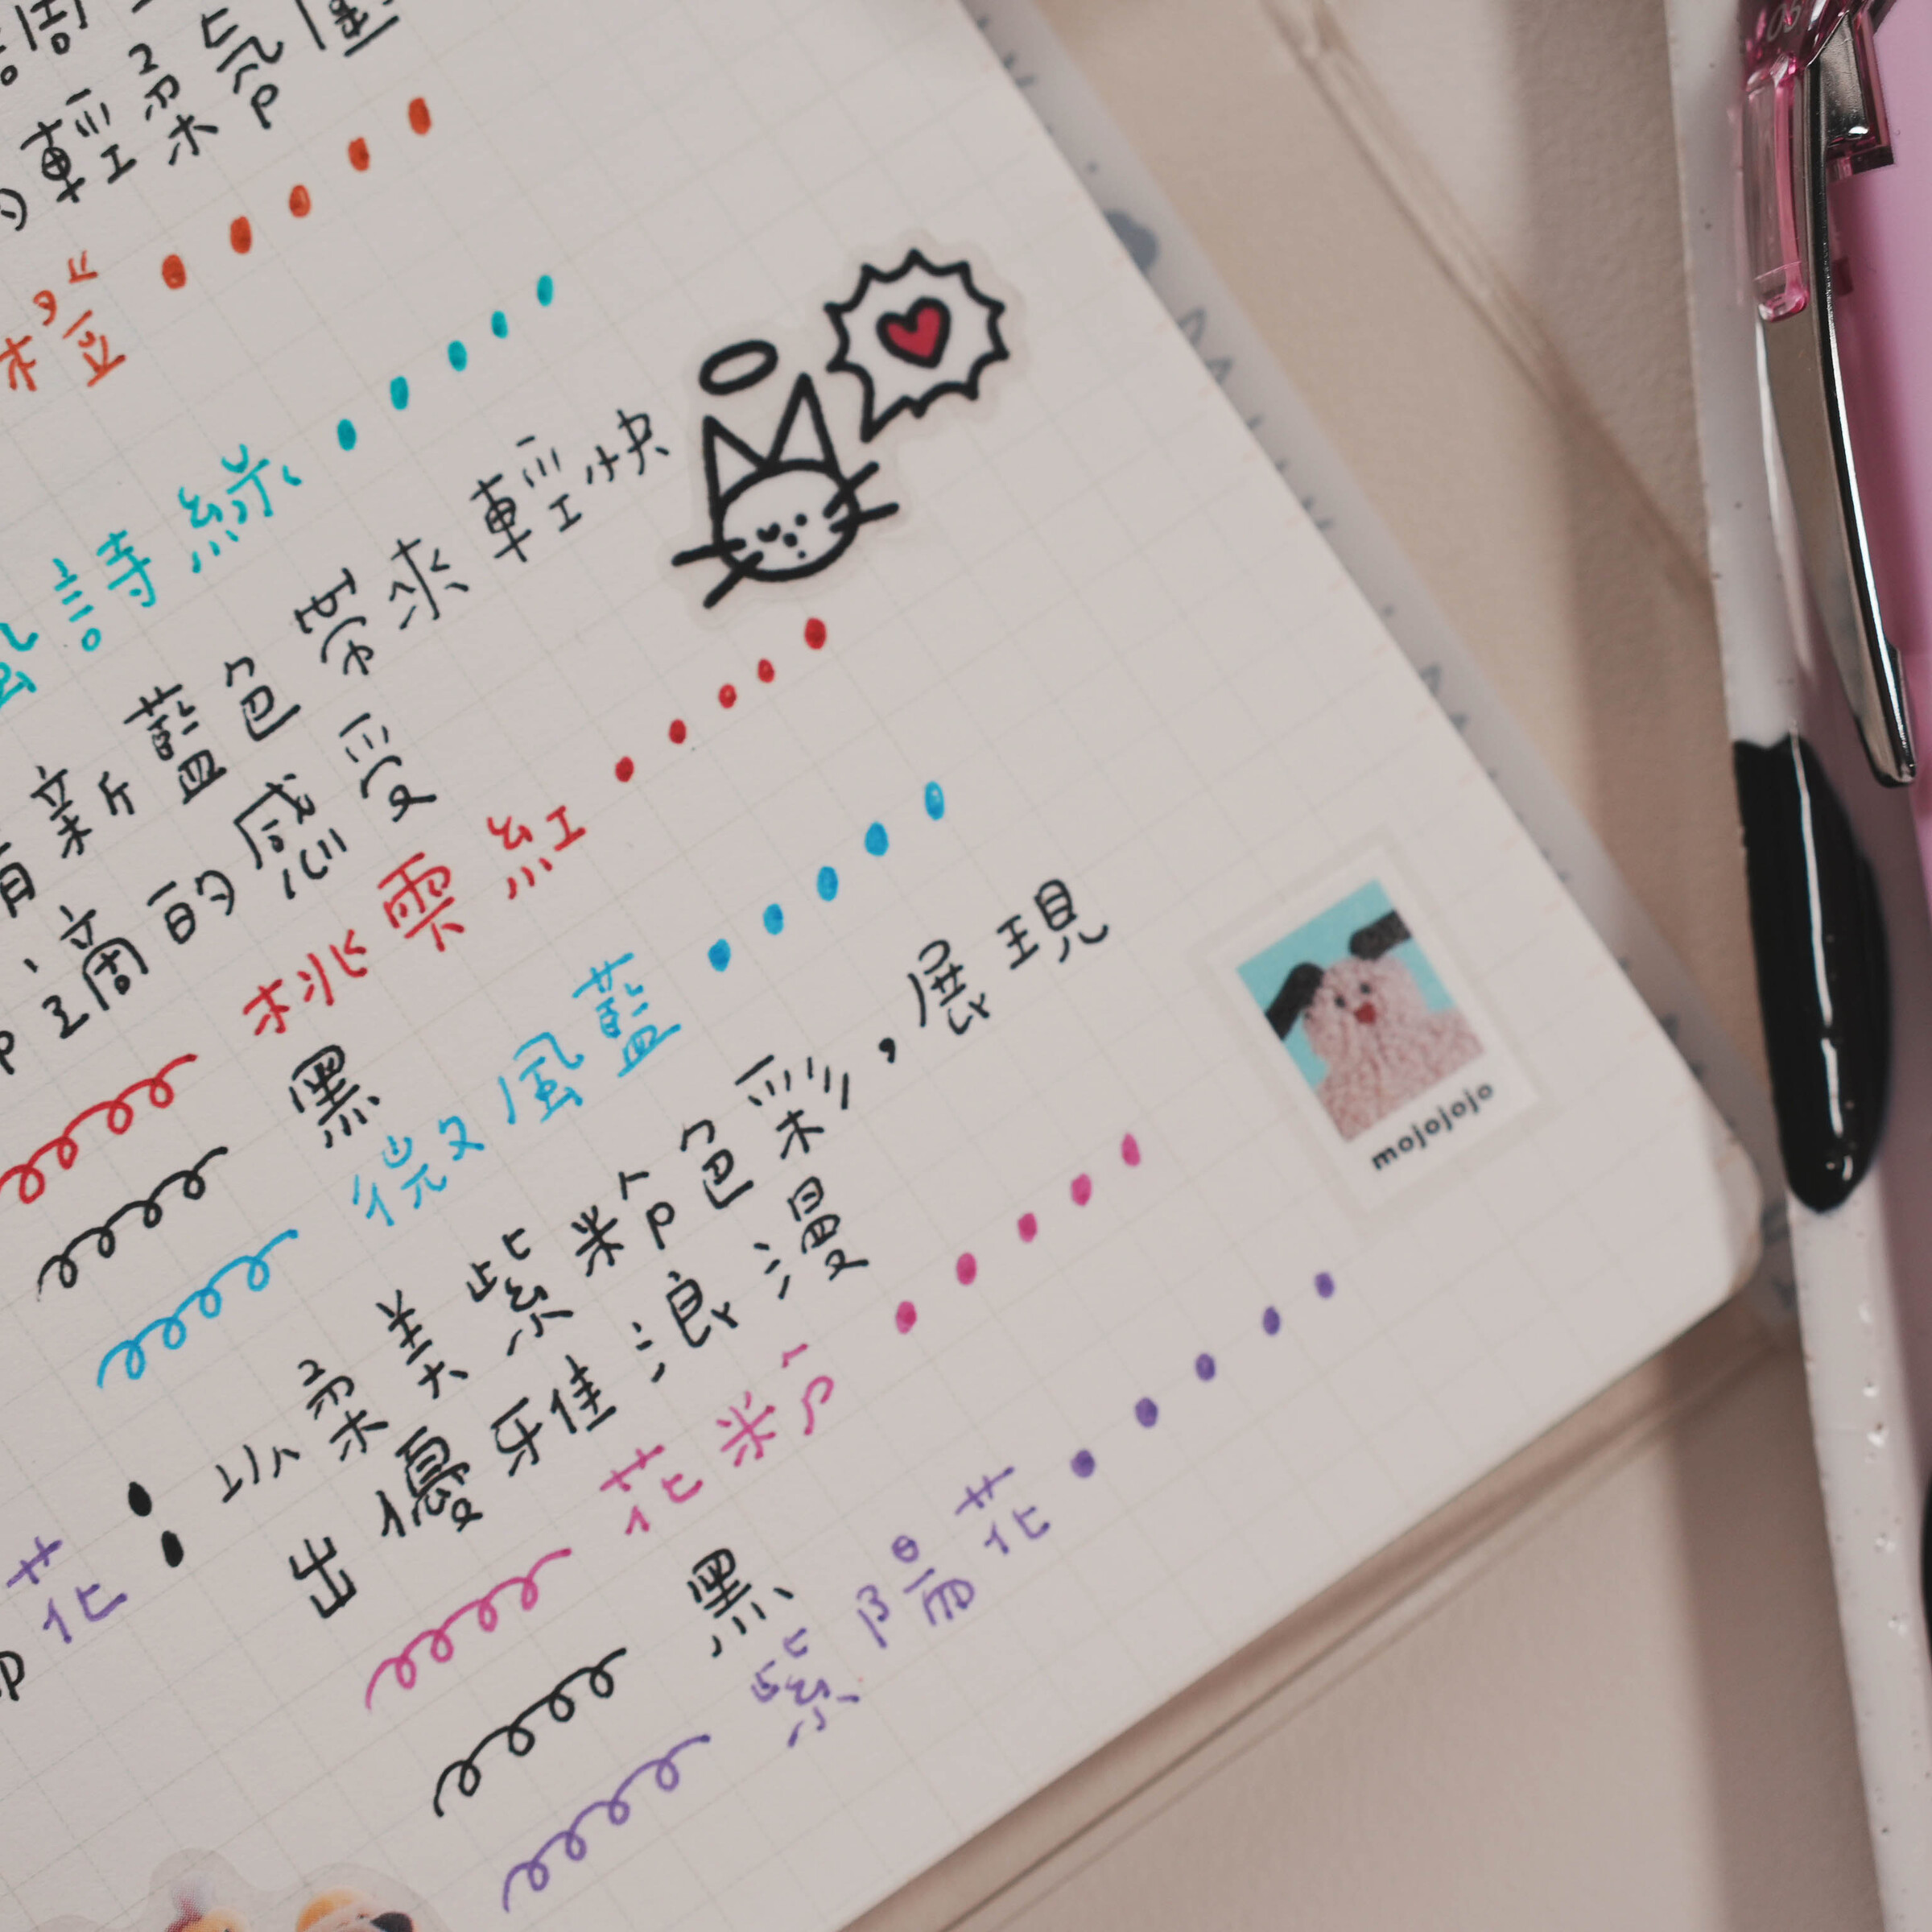 的輕柔氛圍
橙
詩綠
清新藍色帶來輕快
適的感受
桃雲紅
黑
微風藍
花：以柔美紫粉色彩，展現
出優雅浪漫
花粉
黑
紫陽花
mojojojo